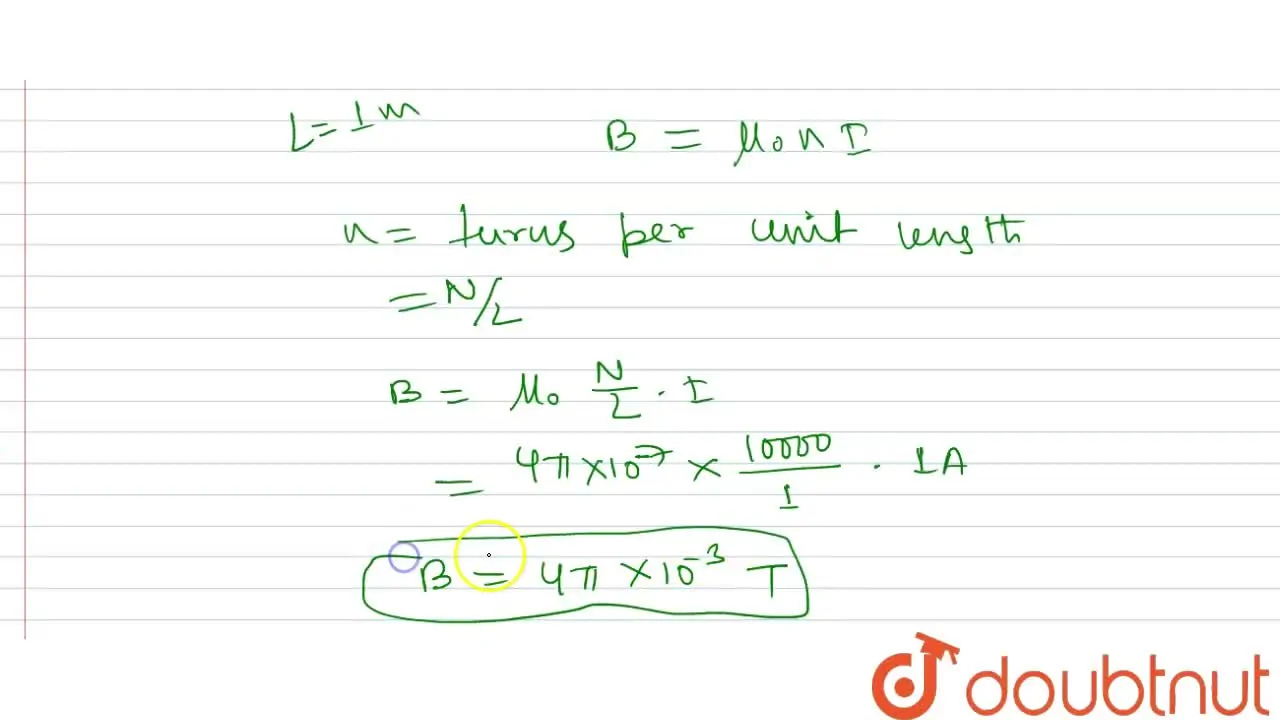 L = 1 m
B = μ₀ n I
n = turns per unit length
= N/L
B = μ₀ N/L . I
= 4π × 10⁻⁷ × 10000/1 . 1A
B = 4π × 10⁻³ T
doubtnut